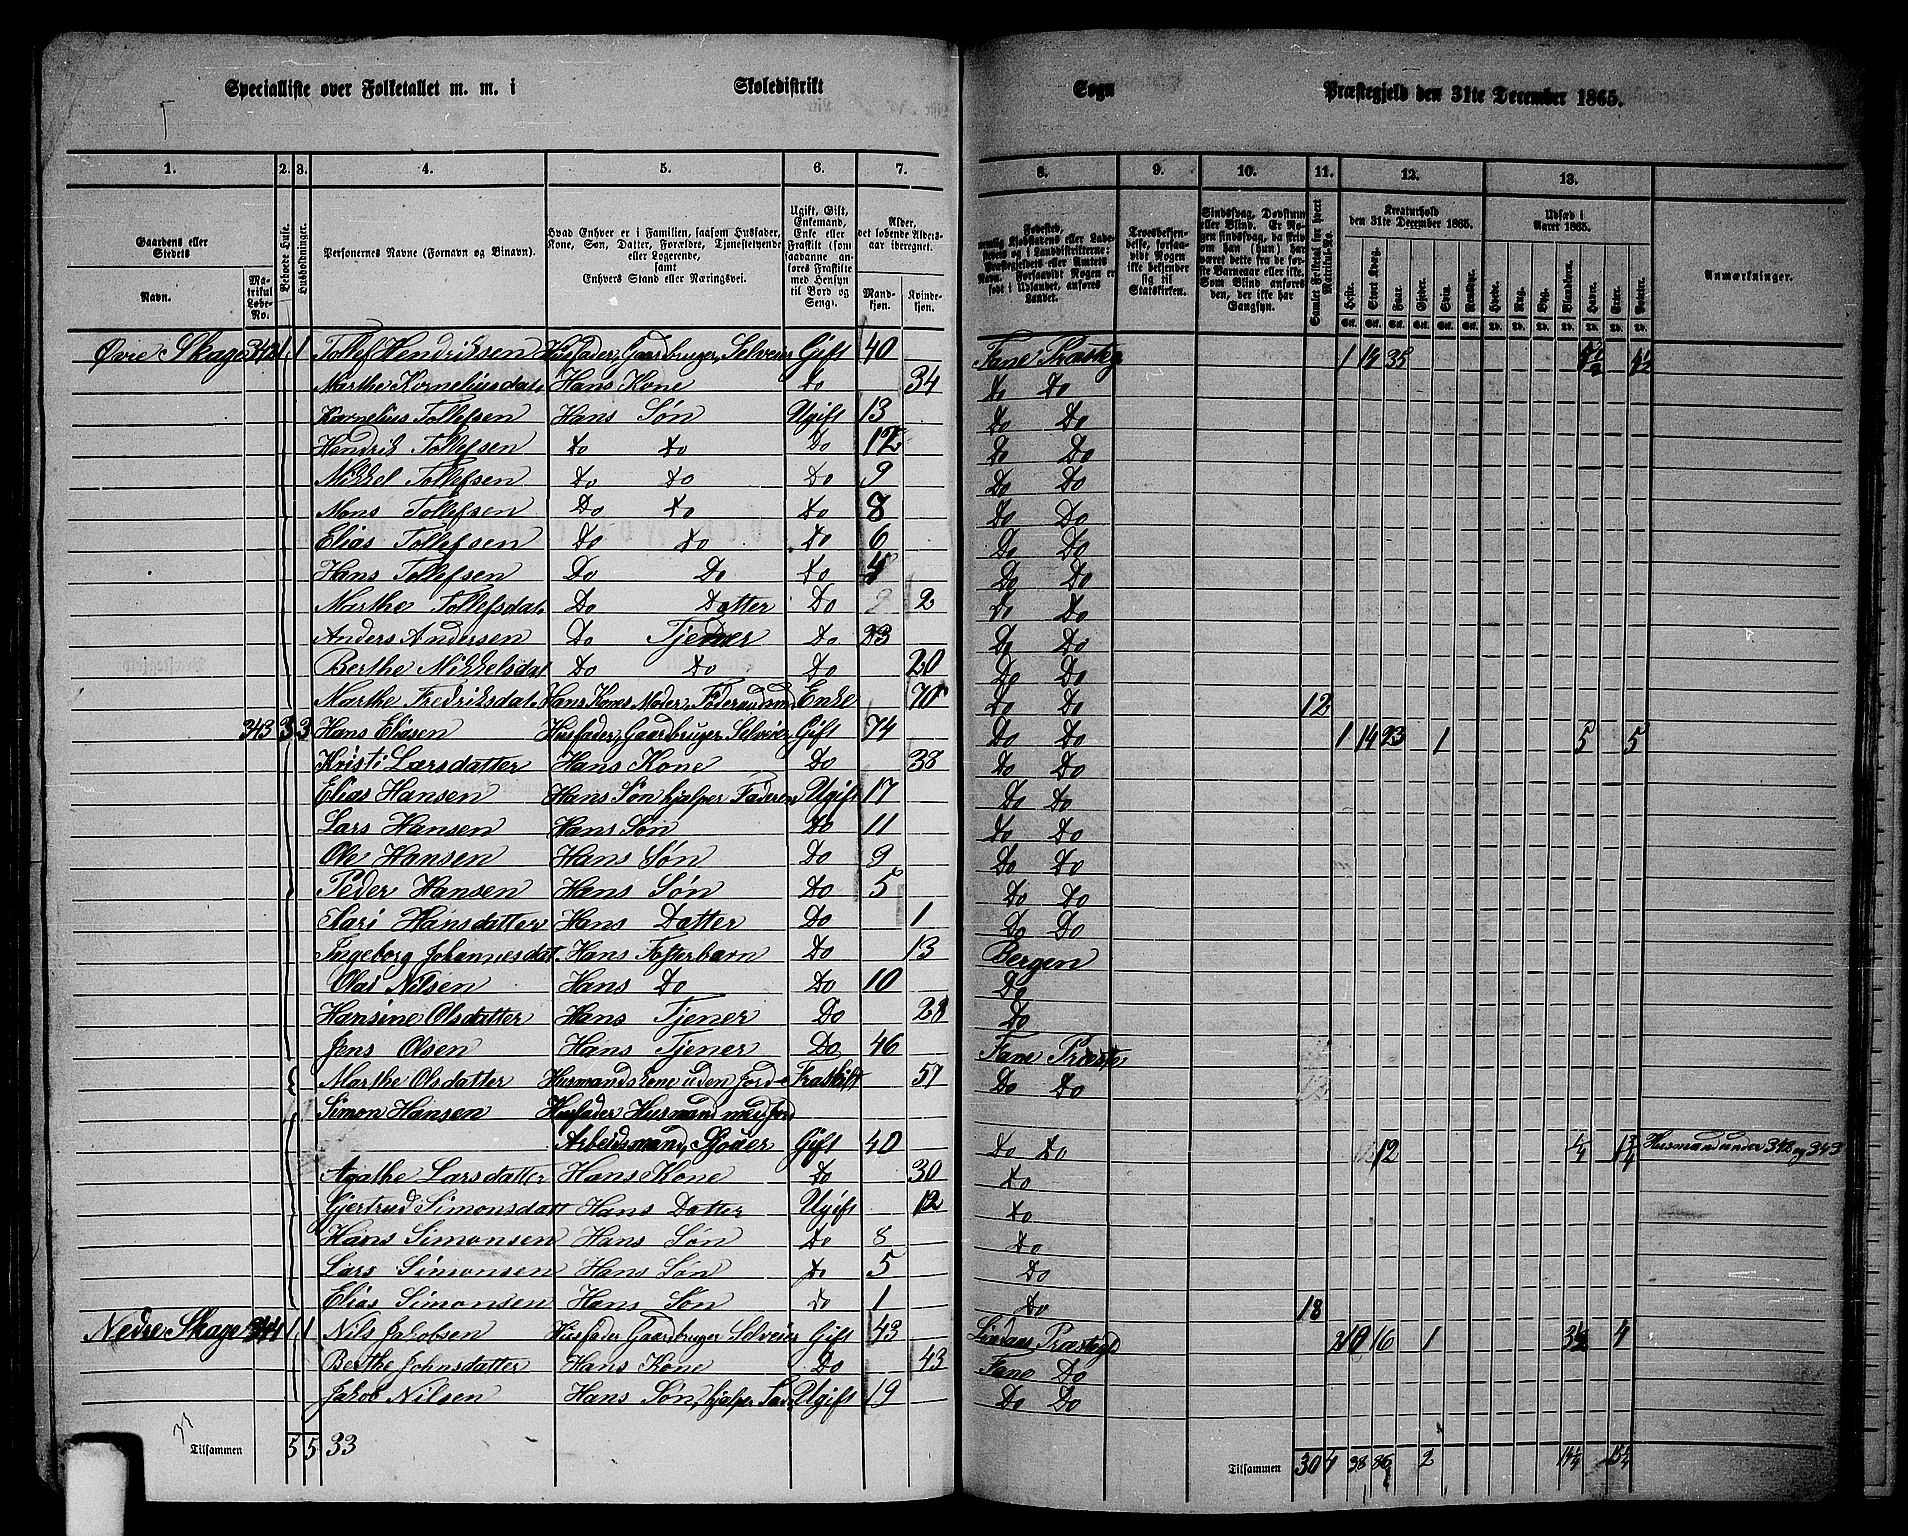 Specialliste over Folketallet m. m. i Skoledistrikt Sogn Præstegjeld den 31te December 1865.
1. 2. 3. 4. 5. 6. 7. 8. 9. 10. 11. 12. 13.
Gaardens eller Stedets
Navn.
Matrikul Løbe-No.
Beboede Huse.
Husholdninger.
Personernes Navne (Fornavn og Binavn).
Hvad Enhver er i Familien, saasom Husfader, Kone, Søn, Datter, Forældre, Tjenestetyende eller Logerende, samt Enhvers Stand eller Næringsvei.
Ugift, Gift, Enkemand, Enke eller Fraskilt (som saadanne anføres Fraskilte med Hensyn til Bord og Seng).
Alder, det løbende Aldersaar iberegnet.
Mandkjøn. Kvindekjøn.
Fødested, nemlig Kjøbstadens eller Ladestedets og i Landdistrikterne: Præstegjeldets eller Amtets Navn. Forsaavidt Nogen er født i Udlandet, anføres Landet.
Troesbekjendelse, forsaavidt Nogen ikke bekjender sig til Statskirken.
Sindssvag, Døvstum eller Blind. Er Nogen sindssvag, da skrives om han (hun) har været dette fra de første Barneaar eller ikke. Som Blind anføres den, der ikke har Gangsyn.
Samlet Folketal for hvert Matrikul-No.
Kreaturhold den 31te December 1865.
Heste. Stort Kvæg. Faar. Gjeder. Svin. Rensdyr.
Udsæd i Aaret 1865.
Hvede. Rug. Byg. Blandkorn. Havre. Erter. Poteter.
Anmærkninger.
Øvre Skage 342 1 1 Tollef Hendriksen Husfader, Gaardbruger, Selveier Gift 40 Fane Præsteg 1 35
Marthe Korneliusdat. Hans Kone Do 34 Do Do
Kornelius Tollefsen Hans Søn Ugift 13 Do Do
Hendrik Tollefsen Do Do Do 12 Do Do
Mikkel Tollefsen Do Do Do 9 Do Do
Mons Tollefsen Do Do Do 8 Do Do
Elias Tollefsen Do Do Do 6 Do Do
Hans Tollefsen Do Do Do 4 Do Do
Marthe Tollefsdat. Do Datter Do 2 Do Do
Anders Andersen Do Tjener Do 23 Do Do
Berthe Mikkelsdat Do Do Do 20 Do Do
Marthe Fredriksdat. Hans Kones Moder, Enke 70 Do Do 12
343 3 3 Hans Eliasen Husfader, Gaardbruger Selveier Gift 74 Do Do 1 14 23 1 5 5
Kristi Larsdatter Hans Kone Do 38 Do Do
Elias Hansen Hans Søn hjælper Faderen Ugift 17 Do Do
Lars Hansen Hans Søn Do 11 Do Do
Ole Hansen Hans Søn Do 9 Do Do
Peder Hansen Hans Søn Do 5 Do Do
Kari Hansdatter Hans Datter Do 1 Do Do
Ingeborg Johannesdat. Hans Fosterbarn Do 13 Bergen
Olai Nilsen Hans Do Do 10 Do
Hansine Olsdatter Hans Tjener Do 23 Do
Jens Olsen Hans Tjener Do 46 Fane Præste
Marthe Olsdatter Husmandskone uden Jord Fraskilt 57 Do Do
Simon Hansen Husfader Husmand med Jord
Arbeidsmand, Gift 40 Do Do 12 1/4 1 3/4 Husmand under 342 og 343
Agathe Larsdatter Hans Kone Do 30 Do
Gjertrud Simonsdatt Hans Datter Ugift 12 Do
Hans Simonsen Hans Søn Do 8 Do
Lars Simonsen Hans Søn Do 5 Do
Elias Simonsen Hans Søn Do 1 Do 18
Nedre Skage 344 1 1 Nils Jakobsen Husfader Gaardbruger Selveier Gift 43 Lindaas Præstegd 2 10 16 1 3 1/2 4
Berthe Johnsdatter Hans Kone Do 43 Fane Do
Jakob Nilsen Hans Søn, hjælper Fad. Ugift 19 Do Do
Tilsammen 5 5 33 Tilsammen 30 4 38 86 2